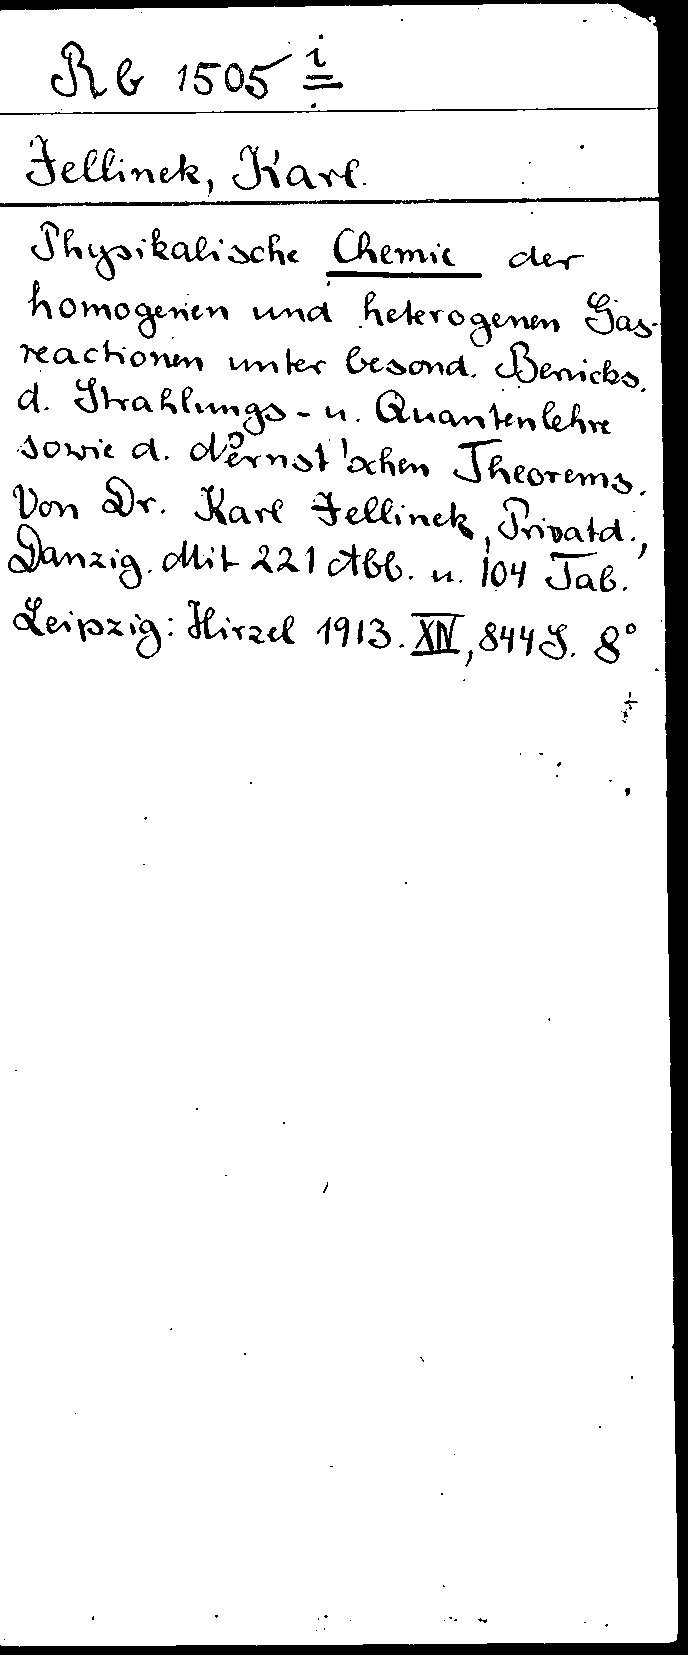 Rb 1505 i
Jellinek, Karl.
Physikalische Chemie der
homogenen und heterogenen Gas-
reactionen unter besond. Berücks.
d. Strahlungs- u. Quantenlehre
sowie d. Nernst'schen Theorems.
Von Dr. Karl Jellinek, Privatd.,
Danzig. Mit 221 Abb. u. 104 Tab.
Leipzig: Hirzel 1913. XIV, 844 S. 8°